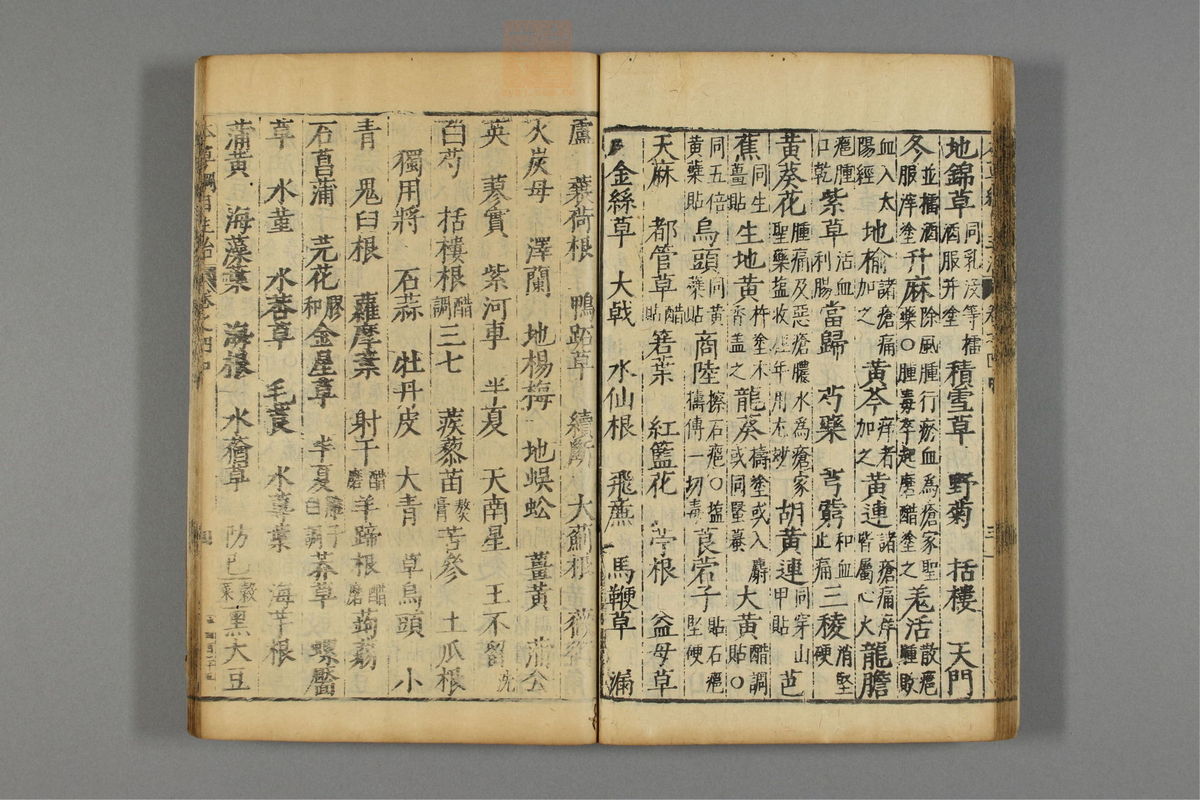 地錦草同乳沒等檑酒服升塗積雪草 野菊 括樓 天門
冬並檑酒服滓塗升麻除風腫行瘀血為瘡家聖藥○腫毒卒起磨醋塗之羌活散癰腫敗
血入大陽經地榆諸瘡痛加之 黃芩痒者加之黃連諸瘡痛痒皆屬心火龍膽
癰腫口乾紫草活血利腸當歸 芍藥 芎藭和血止痛三稜消堅硬
黃葵花腫痛及惡瘡膿水為瘡家聖藥塩收經年用尤妙 胡黃連同穿山甲貼芭
蕉同生薑貼生地黃杵塗木香盖之龍葵或入麝或同蟇 大黃醋調貼○
同五倍黃蘗貼烏頭同黃蘗貼商陸擦石癰○塩擣傅一切毒莨菪子貼石癰堅硬
天麻 都管草醋貼箬葉 紅藍花 苧根 益母草
金絲草 大戟 水仙根 飛廉 馬鞭草 漏
盧 蘘荷根 鴨跖草 續斷 大薊根 薇銜
火炭母 澤蘭 地楊梅 地蜈蚣 薑黃 蒲公
英 蓼實 紫河車 半夏 天南星 王不留
白芍 括樓根醋調三七 蒺藜苗熬膏苦參 土瓜根
獨用將 石蒜 牡丹皮 大青 草烏頭 小
青 鬼臼根 蘿摩葉 射干醋磨羊蹄根醋磨蒟蒻
石菖蒲 芫花膠和金星草 半夏雞子白調莽草 螺厴
草 水堇 水莕草 毛茛 水葒葉 海芋根
蒲黃 海藻葉 海根 水虀草 防己 穀菜熏大豆